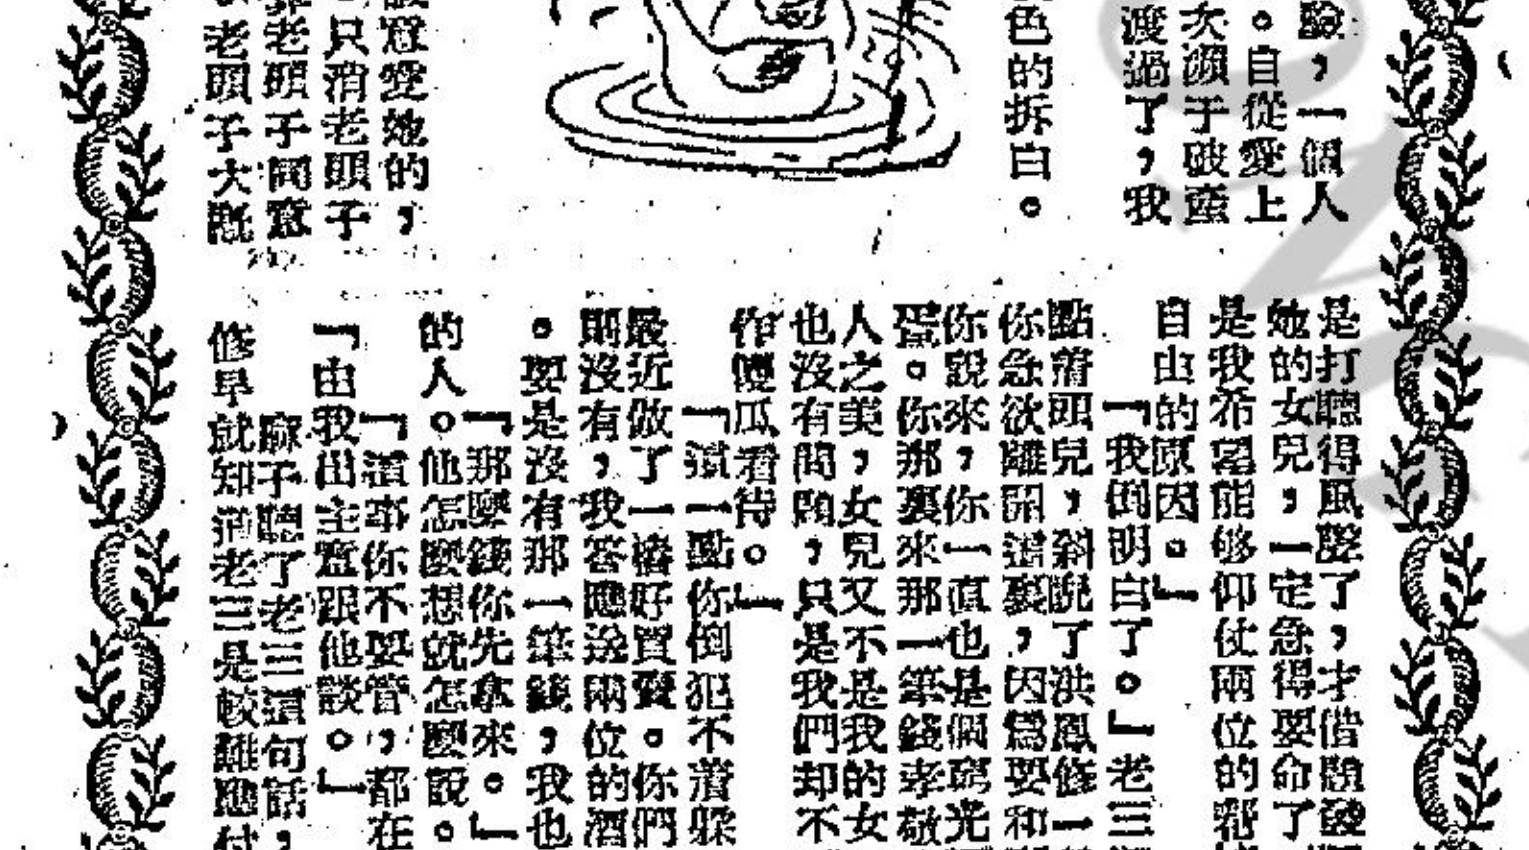 驗，一個人
。自從愛上
次瀕于破產
渡過了，我
色的拆白。
意愛她的，
只消老頭子
老頭子同意
老頭子大概
是打聽得風聲了，才借題
她的女兒，一定急得要命了
是我希望能够仰仗兩位的
自由的原因。」
「我倒明白了。」老三
點着頭兒，斜睨了洪鳳修一
你急欲離開這裏，因爲要和
你說來，你一直也是個窮光
蛋。你那裏來那一筆錢孝敬
人之美，女兒又不是我的女
也沒有問題，只是我們却不
作傻瓜看待。」
「這一點你倒犯不着躱
最近做了一樁好買賣。你們
則沒有，我答應送兩位的酒
。要是沒有那一筆錢，我也
「那麼錢你先拿來。」
的人。他怎麼想就怎麼說。
「這事你不要管，都在
「由我出主意跟他談。」
麻子聽了老三這句話，
修早就知道老三是較難應付